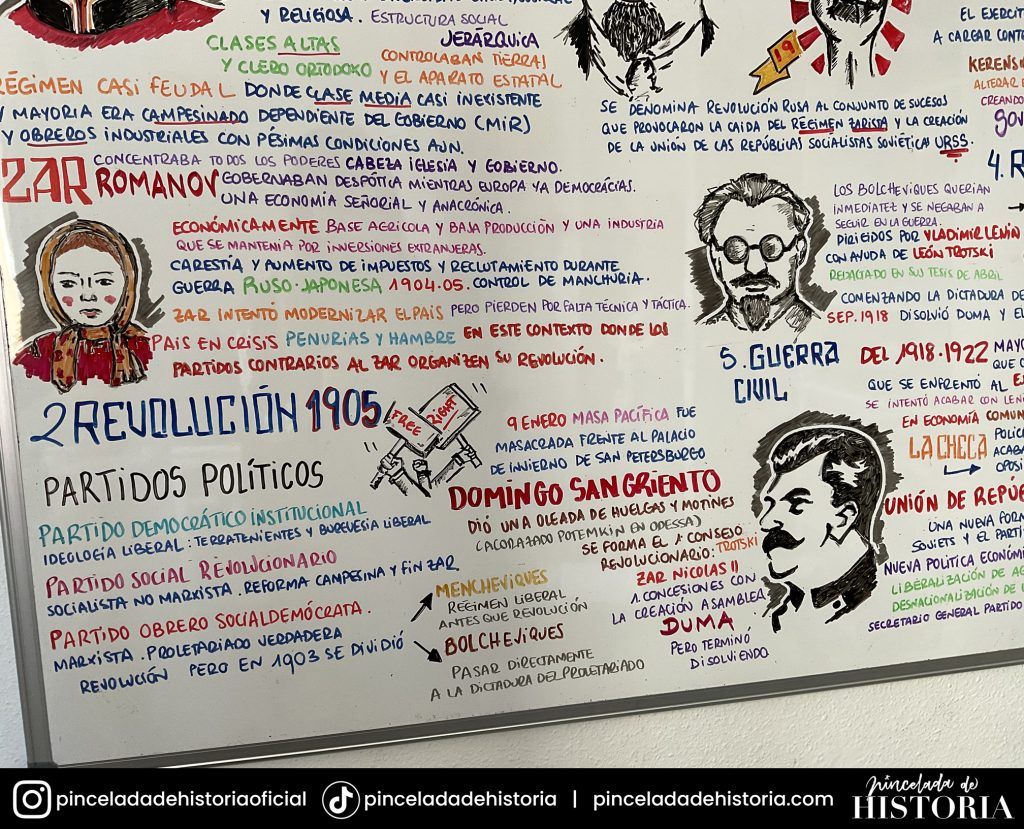 Y RELIGIOSA. ESTRUCTURA SOCIAL
JERÁRQUICA
CLASES ALTAS
Y CLERO ORTODOXO
CONTROLABAN TIERRAS
Y EL APARATO ESTATAL
RÉGIMEN CASI FEUDAL DONDE CLASE MEDIA CASI INEXISTENTE
Y MAYORIA ERA CAMPESINADO DEPENDIENTE DEL GOBIERNO (MIR)
Y OBREROS INDUSTRIALES CON PÉSIMAS CONDICIONES AUN.
ZAR ROMANOV
CONCENTRABA TODOS LOS PODERES CABEZA IGLESIA Y GOBIERNO.
GOBERNABAN DESPÓTICA MIENTRAS EUROPA YA DEMOCRÁCIAS.
UNA ECONOMÍA SEÑORIAL Y ANACRÓNICA.
ECONÓMICAMENTE BASE AGRÍCOLA Y BAJA PRODUCCIÓN Y UNA INDUSTRIA
QUE SE MANTENIA POR INVERSIONES EXTRANJERAS.
CARESTÍA Y AUMENTO DE IMPUESTOS Y RECLUTAMIENTO DURANTE
GUERRA RUSO-JAPONESA 1904-05. CONTROL DE MANCHURIA.
ZAR INTENTÓ MODERNIZAR EL PAÍS PERO PIERDEN POR FALTA TÉCNICA Y TÁCTICA.
PAIS EN CRISIS PENURIAS Y HAMBRE EN ESTE CONTEXTO DONDE LOS
PARTIDOS CONTRARIOS AL ZAR ORGANIZEN SU REVOLUCIÓN.
2 REVOLUCIÓN 1905
FREE
RIGHT
PARTIDOS POLÍTICOS
PARTIDO DEMOCRÁTICO INSTITUCIONAL
IDEOLOGÍA LIBERAL: TERRATENIENTES Y BURGUESÍA LIBERAL
PARTIDO SOCIAL REVOLUCIONARIO
SOCIALISTA NO MARXISTA. REFORMA CAMPESINA Y FIN ZAR
PARTIDO OBRERO SOCIALDEMÓCRATA.
MARXISTA. PROLETARIADO VERDADERA
REVOLUCIÓN PERO EN 1903 SE DIVIDIÓ
MENCHEVIQUES
RÉGIMEN LIBERAL
ANTES QUE REVOLUCIÓN
BOLCHEVIQUES
PASAR DIRECTAMENTE
A LA DICTADURA DEL PROLETARIADO
9 ENERO MASA PACÍFICA FUE
MASACRADA FRENTE AL PALACIO
DE INVIERNO DE SAN PETERSBURGO
DOMINGO SANGRIENTO
DIÓ UNA OLEADA DE HUELGAS Y MOTINES
(ACORAZADO POTEMKIN EN ODESSA)
SE FORMA EL 1º CONSEJO
REVOLUCIONARIO: TROTSKI
ZAR NICOLAS II
1. CONCESIONES CON
LA CREACIÓN ASAMBLEA
DUMA
PERO TERMINÓ
DISOLVIENDO
19
SE DENOMINA REVOLUCIÓN RUSA AL CONJUNTO DE SUCESOS
QUE PROVOCARON LA CAIDA DEL RÉGIMEN ZARISTA Y LA CREACIÓN
DE LA UNIÓN DE LAS REPÚBLICAS SOCIALISTAS SOVIÉTICA URSS.
EL EJERCIT
A CARGAR CONT
KERENS
ALTERAR
CREANDO
SOV
4. R
LOS BOLCHEVIQUES QUERIAN
INMEDIATEZ Y SE NEGABAN A
SEGUIR EN LA GUERRA.
DIRIGIDOS POR VLADIMIR LENIN
CON AYUDA DE LEÓN TROTSKI
REDACTADO EN SUS TESIS DE ABRIL
COMENZANDO LA DICTADURA DE
SEP. 1918 DISOLVIÓ DUMA Y EL
5. GUERRA
CIVIL
DEL 1918-1922 MAYO
QUE
QUE SE ENFRENTÓ AL
SE INTENTÓ ACABAR CON LENI
EN ECONOMÍA COMUN
LA CHECA
POLIC
ACABA
OPOSI
UNIÓN DE REPÚ
UNA NUEVA FORM
SOVIETS Y EL PARTI
NUEVA POLITICA ECONÓMI
LIBERALIZACIÓN DE AG
DESNACIONALIZACIÓN DE
SECRETARIO GENERAL PARTIDO
pinceladadehistoriaoficial
pinceladadehistoria | pinceladadehistoria.com
pincelada de
HISTORIA